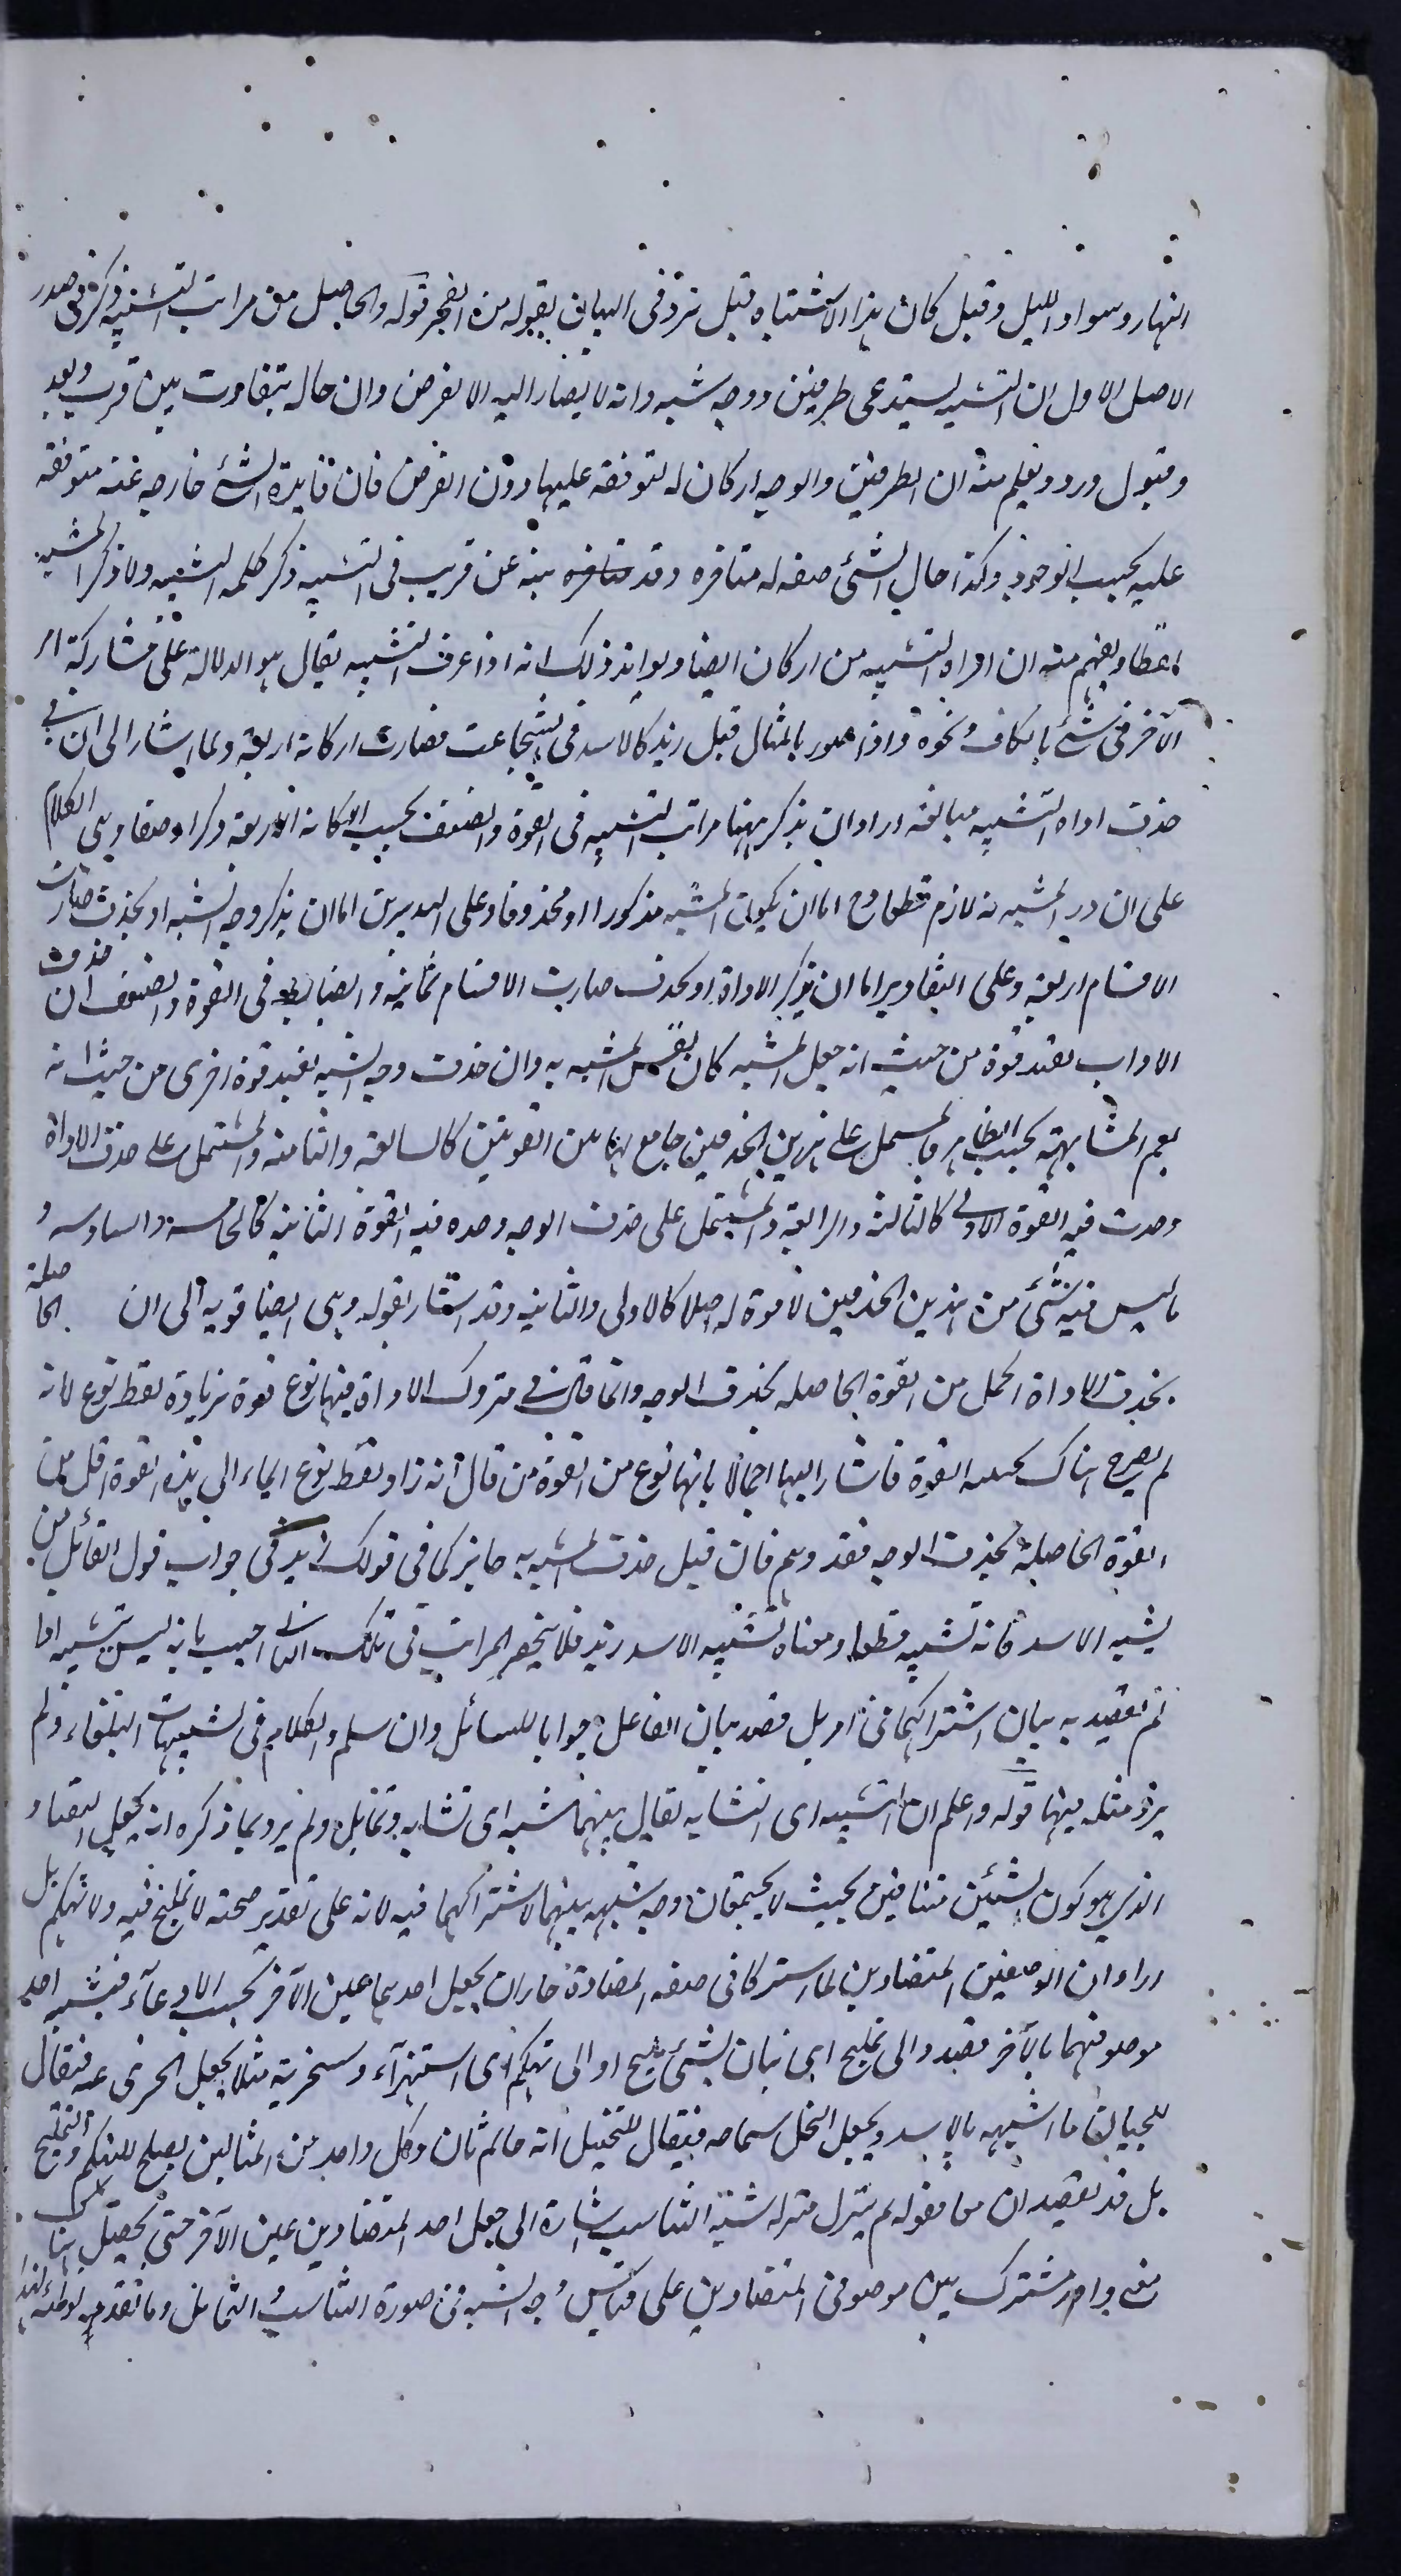 النهار وسواد الليل وقبل كان هذا الاشتباه قبل نزوله من البيان بقوله من الفجر قوله والحاصل من مراتب التشبيه ذكر في صدر
الاصل الاول ان التشبيه يستدعى طرفين ووجه شبه وانه لا يصار اليه الا لغرض وان حاله يتفاوت بين قرب وبعد
وقبول ورد ويعلم منه ان الطرفين والوجه اركان له لتوقفه عليها دون الغرض فان فايدة الشئ خارجه عنه متوقفه
عليه بحسب الوجود وكذا حال الشئ صفه له متاخره وقد بينه عن قريب فى التشبيه ذكر كلمه التشبيه ولا ذكر المشبه
لفظا ويفهم منه ان اداه التشبيه من اركان ايضا ويوايد ذلك انه اذا عرف التشبيه يقال هو الدلالة على مشاركة امر
الآخر فى شئ بالكاف ونحوه واذا صور بالمثال قيل زيد كالاسد فى الشجاعت فصارت اركانه اربعة ولما اشار الى ان فى
حذف اداه التشبيه مبالغه اراد ان يذكر ههنا مراتب التشبيه فى القوة والضعف بحسب اركانه الاربعة ذكرا وحذفا وبنى الكلام
على ان ذكر المشبه به لازم قطعا وح اما ان يكون المشبه مذكورا او محذوفا وعلى التقديرين اما ان يذكر وجه الشبه او يحذف صارت
الاقسام اربعة وعلى التقادير اما ان يذكر الاداة او يحذف صارت الاقسام ثمانية والضابط فى القوة والضعف ان حذف
الادات يفيد قوة من حيث انه جعل المشبه كان نفس المشبه به وان حذف وجه الشبه يفيد قوة اخرى من حيث انه
يعم المشابهة بحسب الظاهر فالمشتمل على هذين الحذفين جامع لهاتين القوتين كالسابعة والثامنه والمشتمل على حذف الاداة
وحدت فيه القوة الاولى كالثالثة والرابعة والمشتمل على حذف الوجه وحده فيه القوة الثانية كالخامسه والسادسه و
ما ليس فيه شئ من هذين الحذفين لا قوة له اصلا كالاولى والثانيه وقد اشار بقوله وهى ايضا قويه الى ان الحاصلة
بحذف الاداة اكمل من القوة الحاصله بحذف الوجه وانما قال فى متروك الاداة فيها نوع قوة بزيادة لفظ نوع لانه
لم يصرح هناك القوة فاشار اليها اجمالا بانها نوع من القوة من قال انه زاد لفظ نوع ايماء الى ان هذه القوة اقل من
القوة الحاصلة بحذف الوجه فقد وهم فان قيل حذف المشبه به جايز كما فى قولك زيد فى جواب قول القائل من
يشبه الاسد فانه تشبيه قطعا ومعناه تشبيه الاسد زيد فلا ينحصر المراتب فى تلك الثمانى اجيب بانه ليس تشبيه اذا
لم يقصد به بيان اشتراكهما فى امر بل قصد بيان الفاعل جوابا للسائل وان سلم والكلام فى تشبيهات البلغاء ولم
يرد مثله فيها قوله واعلم ان التشبيه اى التشابه يقال بينهما شبه اى تشابه وتماثل ولم يرد بما ذكره انه يجعل التضاد
الذى هو كون الشيئين متنافيين بحيث لا يجتمعان وجه شبه بينهما لاشتراكهما فيه لانه على تقدير صحته لا تمليح فيه ولا تهكم بل
اراد ان الوصفين المتضادين لما اشتركا فى صفه المضادة جاز ان يجعل احدهما عين الآخر بحسب الادعاء فيشبه احد
موصوفيهما بالآخر قصدا الى تمليح اى بيان لشئ مليح او الى تهكم اى استهزآء وسخرية مثلا يجعل الجبن شجاعه فيقال
للجبان ما اشبهه بالاسد ويجعل البخل سماحه فيقال للبخيل انه حاتم ثان وكل واحد من المثالين يصلح للتهكم والتمليح
بل قد يقصدان معا فقوله ثم ينزل منزله شبه التناسب اشارة الى جعل احد المتضادين عين الآخر حتى يحصل هناك
معنى واحد مشترك بين موصوفى المتضادين على قياس وجه الشبه فى صورة التناسب والتماثل وما تقدمه توطئه لهذا